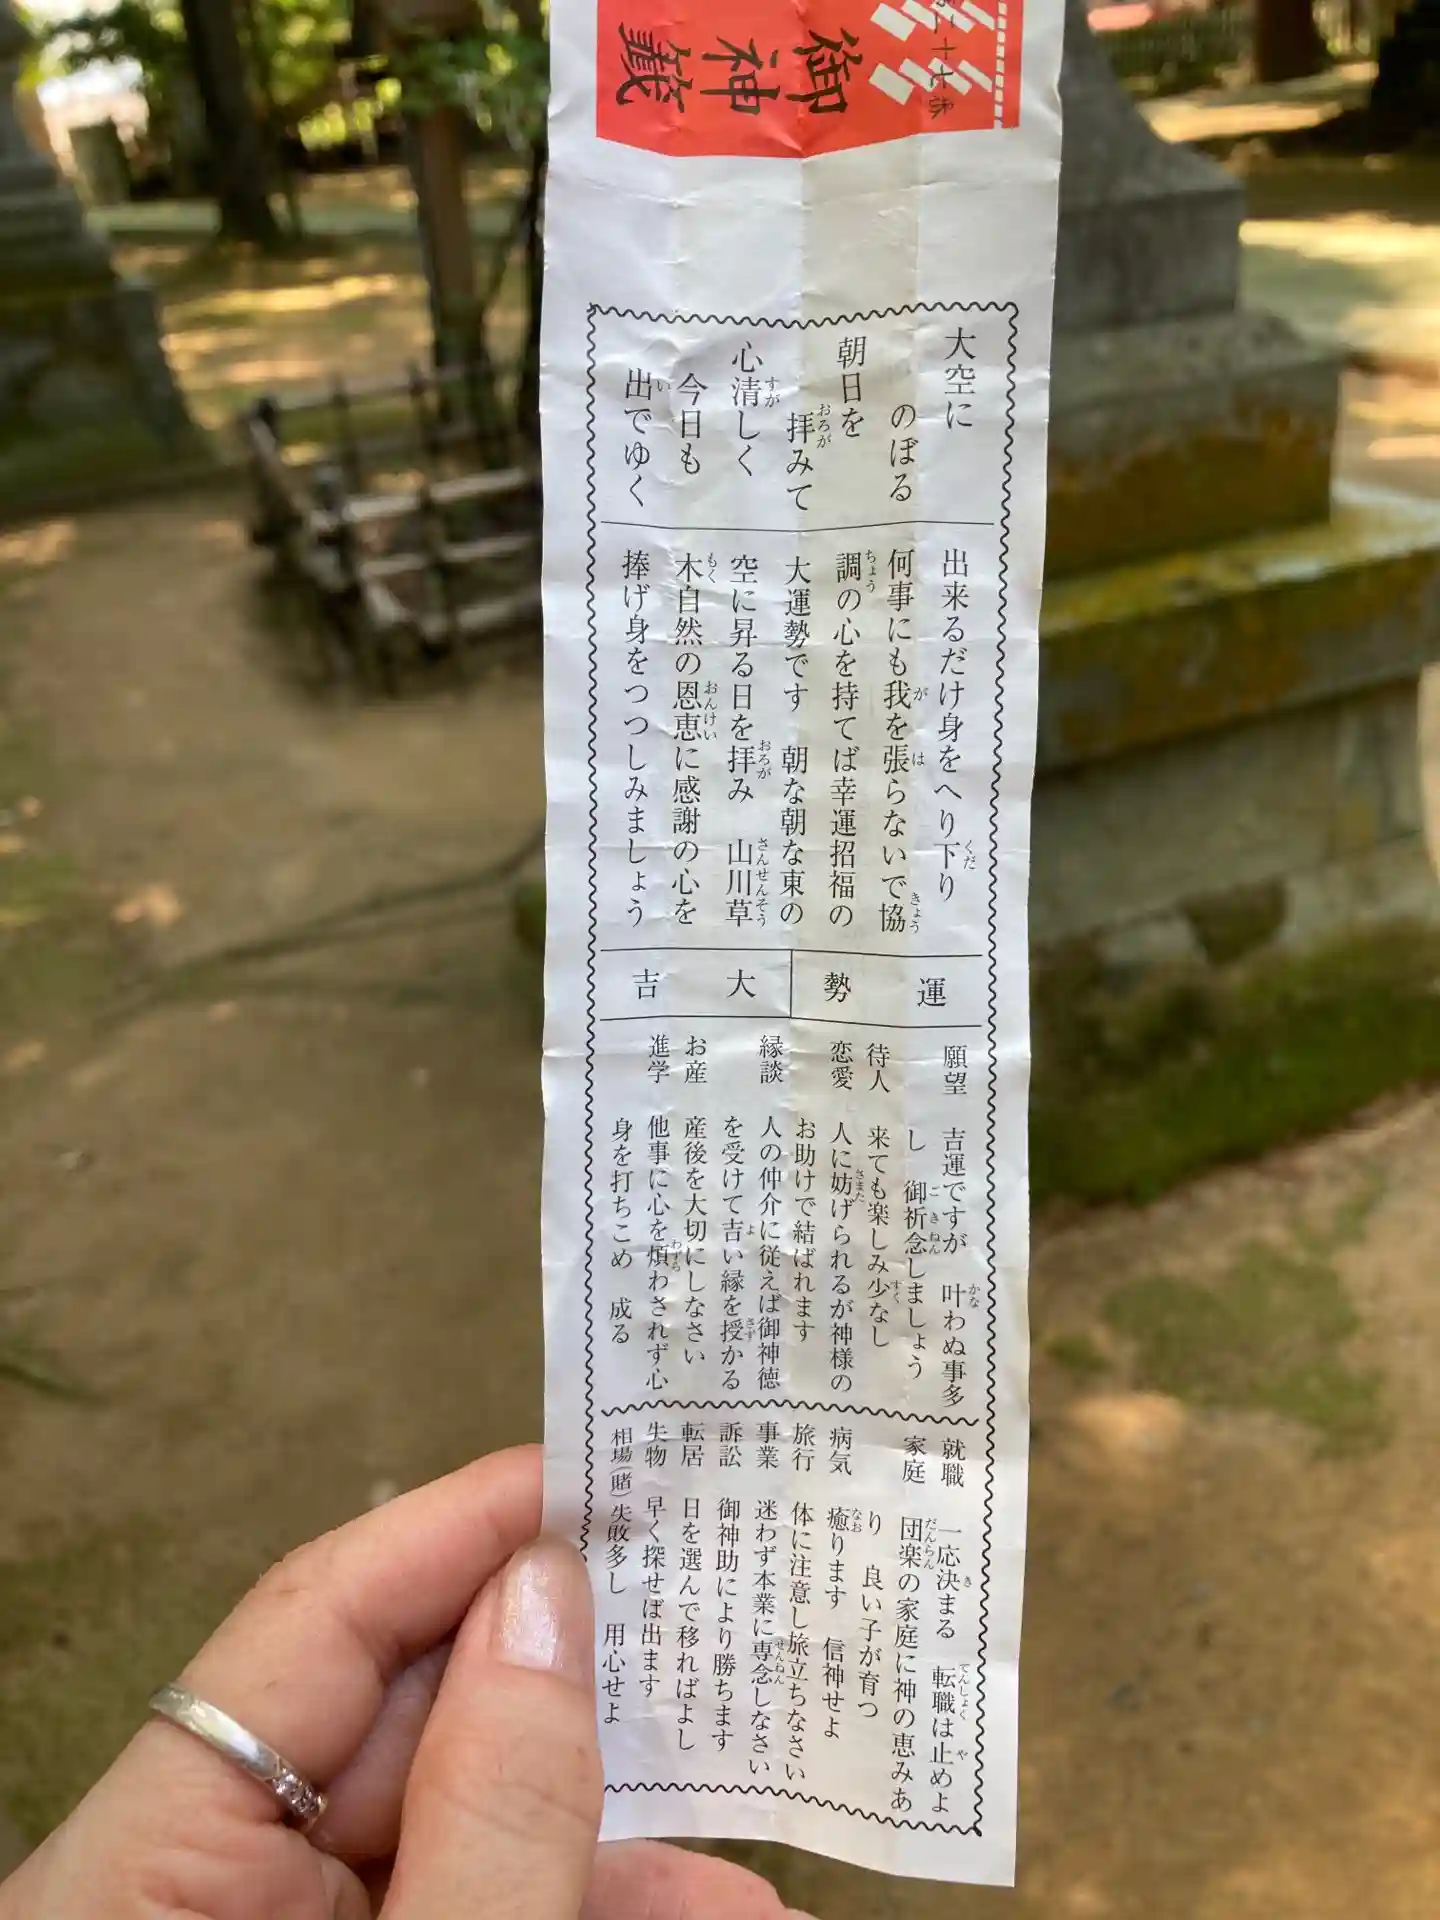 御神籤
大空に
のぼる
朝日を
拝みて
心清しく
今日も
出でゆく
出来るだけ身をへり下り
何事にも我を張らないで協
調の心を持てば幸運招福の
大運勢です　朝な朝な東の
空に昇る日を拝み　山川草
木自然の恩恵に感謝の心を
捧げ身をつつしみましょう
運勢
大吉
願望　吉運ですが　叶わぬ事多
し　御祈念しましょう
待人　来ても楽しみ少なし
恋愛　人に妨げられるが神様の
お助けで結ばれます
縁談　人の仲介に従えば御神徳
を受けて吉い縁を授かる
お産　産後を大切にしなさい
進学　他事に心を煩わされず心
身を打ちこめ　成る
就職　一応決まる　転職は止めよ
家庭　団楽の家庭に神の恵みあ
り　良い子が育つ
病気　癒ります　信神せよ
旅行　体に注意し旅立ちなさい
事業　迷わず本業に専念しなさい
訴訟　御神助により勝ちます
転居　日を選んで移ればよし
失物　早く探せば出ます
相場(賭)　失敗多し　用心せよ